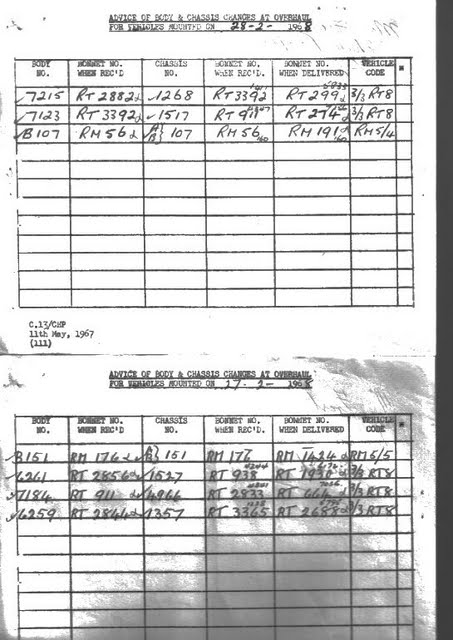 ADVICE OF BODY & CHASSIS CHANGES AT OVERHAUL
FOR VEHICLES MOUNTED ON 28-2- 1968
BODY NO. BONNET NO. WHEN REC'D. CHASSIS NO. BONNET NO. WHEN REC'D. BONNET NO. WHEN DELIVERED VEHICLE CODE *
✓7215 RT 2882 ✓1268 RT 3392 RT 299 3/3 RT8
✓7123 RT 3392 ✓1517 RT 911 RT 274 3/3 RT8
✓B107 RM 56 A} B} 107 RM 56 RM 191 RM 5/4
C.13/CHP
11th May, 1967
(111)
ADVICE OF BODY & CHASSIS CHANGES AT OVERHAUL
FOR VEHICLES MOUNTED ON 17-2- 1968
BODY NO. BONNET NO. WHEN REC'D. CHASSIS NO. BONNET NO. WHEN REC'D. BONNET NO. WHEN DELIVERED VEHICLE CODE
✓B151 RM 176 A} B} 151 RM 176 RM 1424 RM 5/5
✓6261 RT 2856 ✓1527 RT 938 RT 3/3 RT8
✓7184 RT 911 ✓4966 RT 2833 RT 664 3/3 RT8
✓6259 RT 2844 ✓1357 RT 3365 RT 2688 3/3 RT8